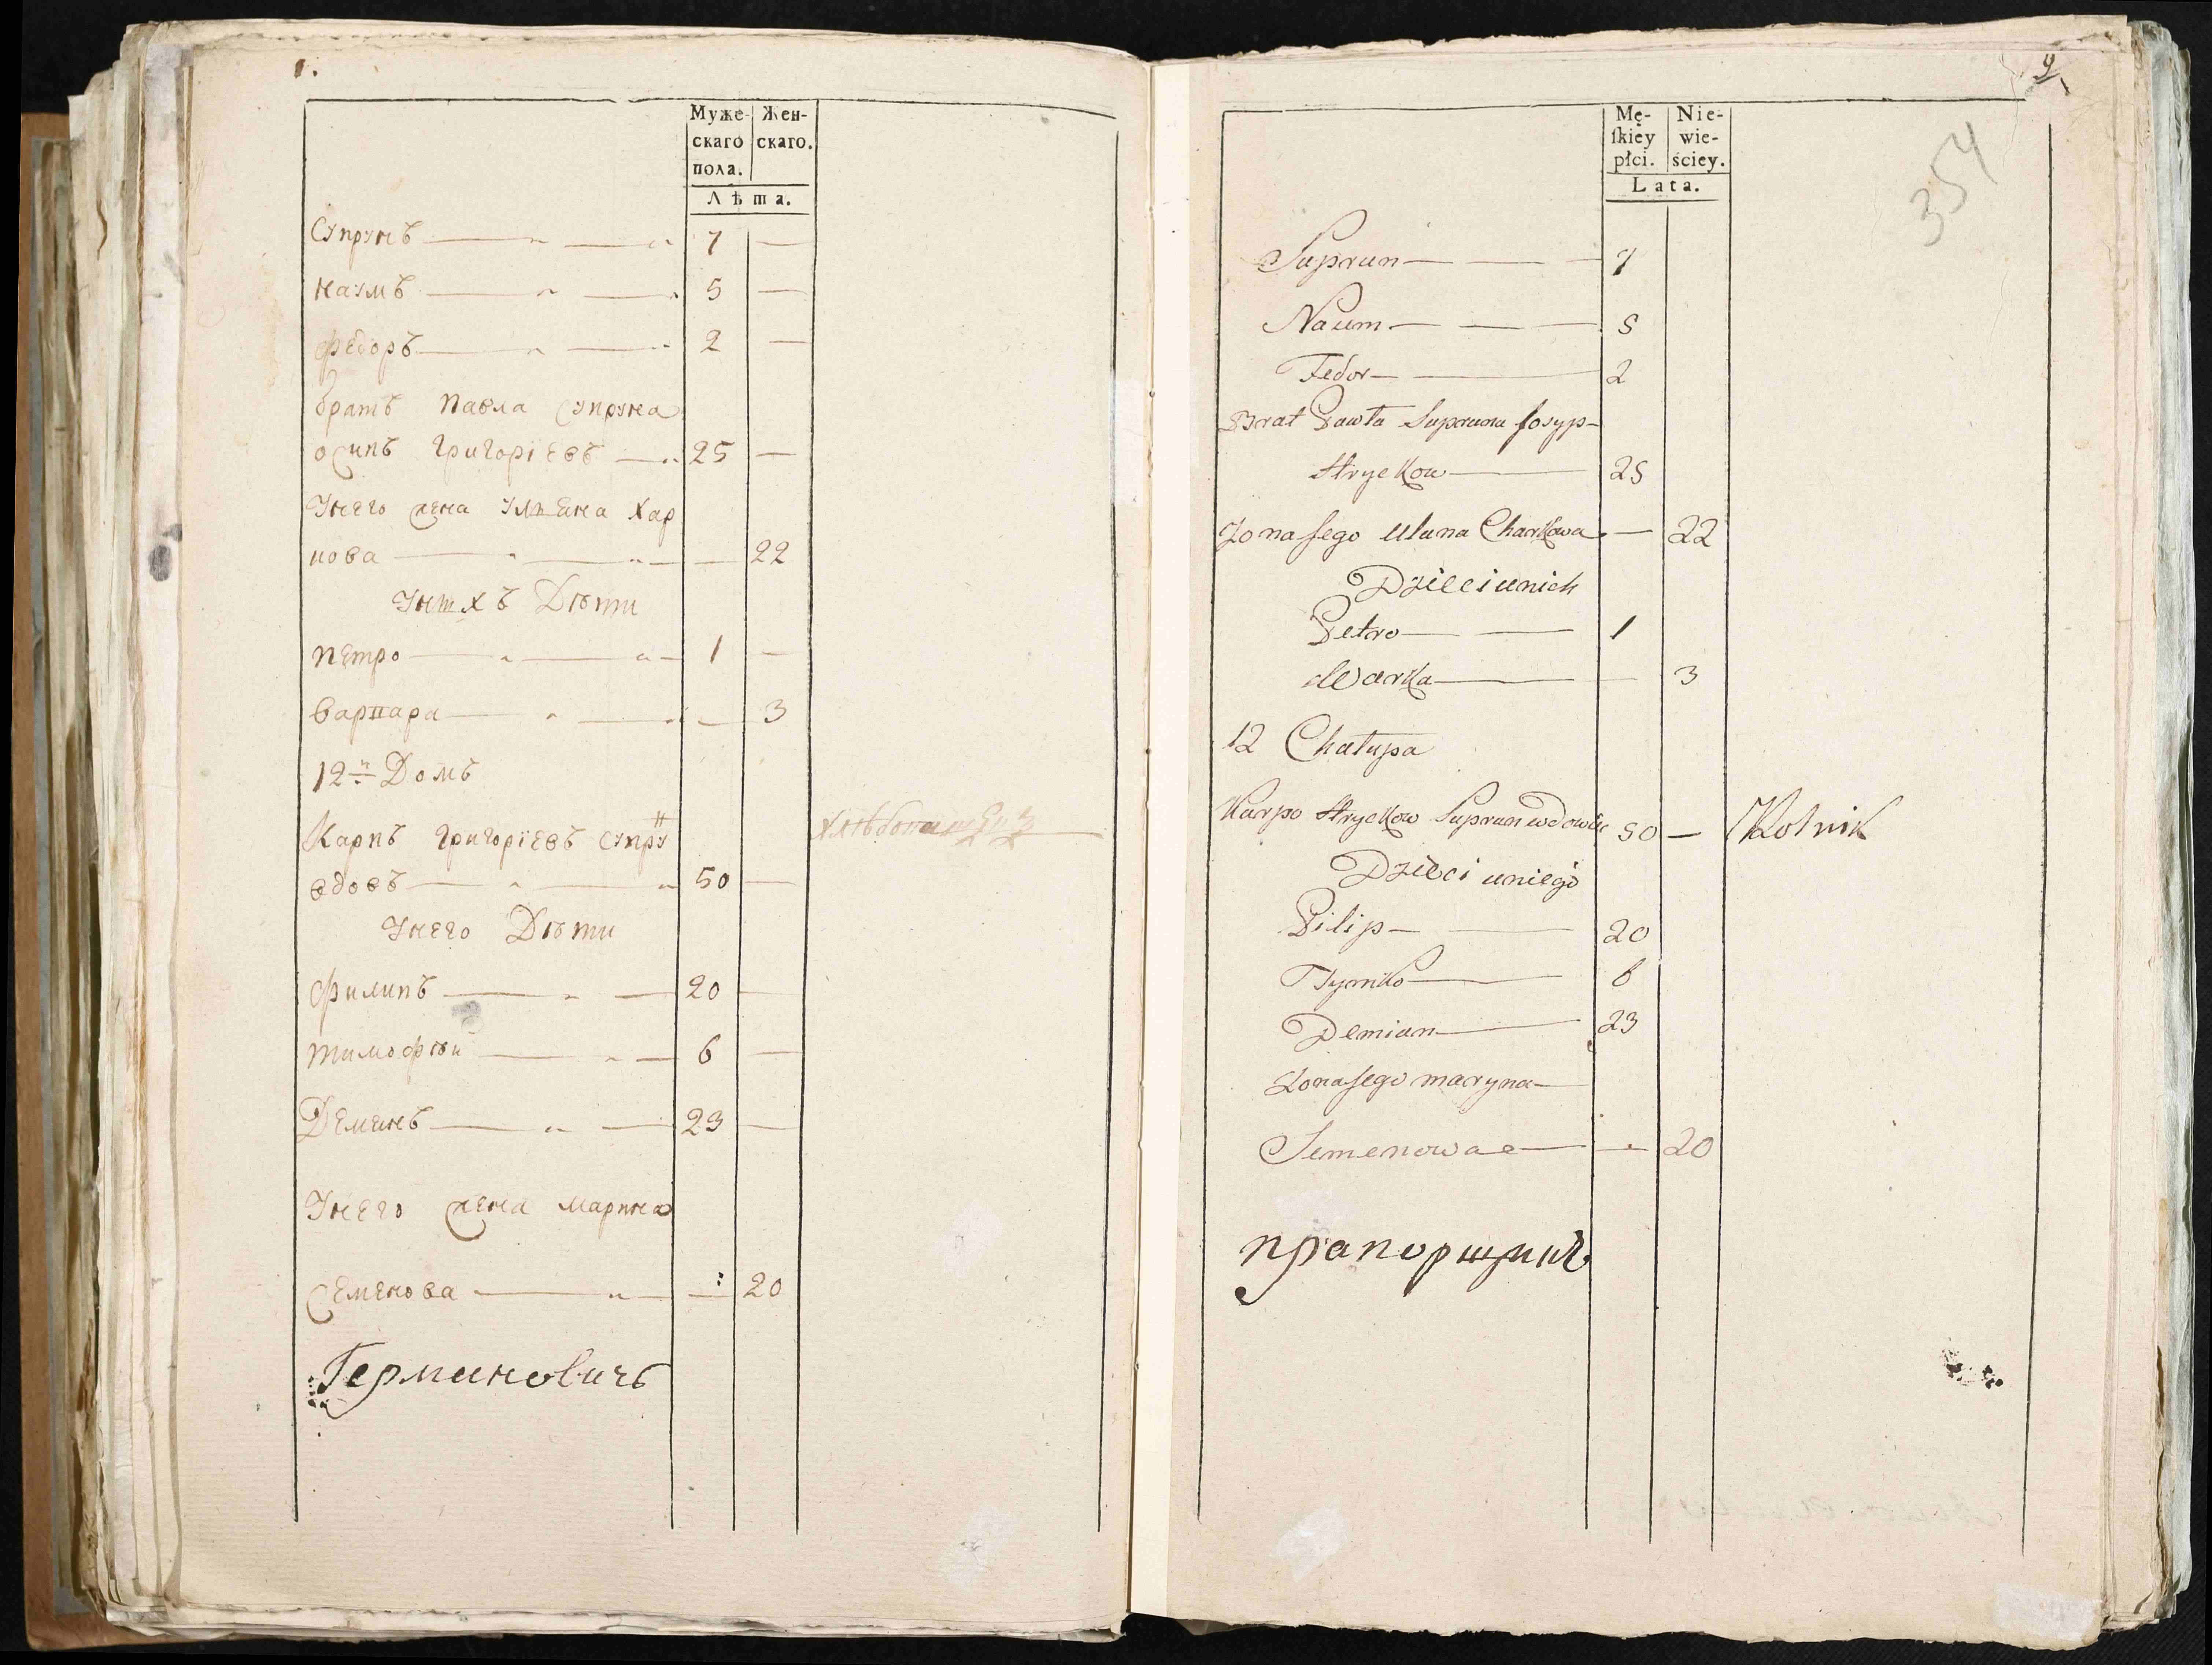 1.
Муже- Жен-
скаго скаго.
пола.
Лѣта.
Супрунъ — 7 —
Наумъ — 5 —
Федоръ — 2 —
братъ Павла Супруна
осипъ Григорiевъ — 25 —
Унего жена Ульяна Хар
нова — — 22
Унихъ Дѣти
Петро — 1 —
Варвара — — 3
12й Домъ
Карпъ Григорїевъ Супру
Хлѣбопашецъ
вдовъ — 50 —
Унего Дѣти
Филипъ — 20 —
Тимофѣй — 6 —
Демянъ — 23 —
Унего жена Марина
Семенова — — 20
Герминовичъ
9
354
Mę- Nie-
ſkiéy wie-
płci. ściey.
Lata.
Suprun — 7
Naum — 5
Fedor — 2
Brat Pawła Supruna Josyp
Hryckow — 25
Żona Jego Ulana Charkowa — 22
Dzieci unich
Petro — 1
Warka — 3
12 Chałupa
Karpo Hryckow Suprun wdowiec 50 — Rolnik
Dzieci uniego
Pilip — 20
Tymko — 6
Demian — 23
Żona Jego maryna —
Semenowa — — 20
прапорщикъ